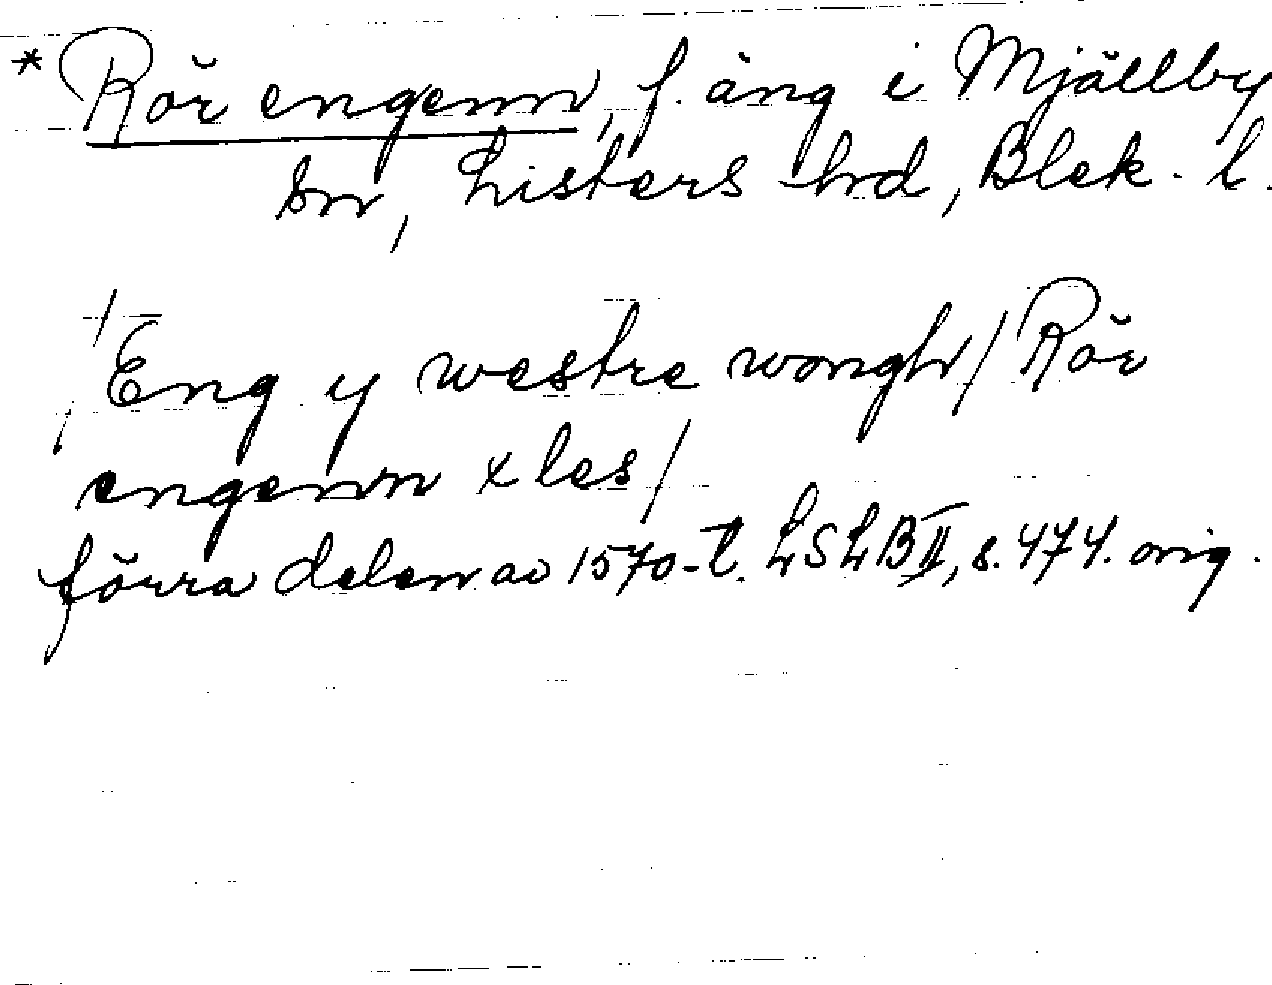 * Rör engenn, f. äng i Mjällby
sn, Listers hrd, Blek. l.
/Eng y westre wongh/ Rör
engenn x les/
förra delen av 1570-t. LSLB II, s. 474. orig.